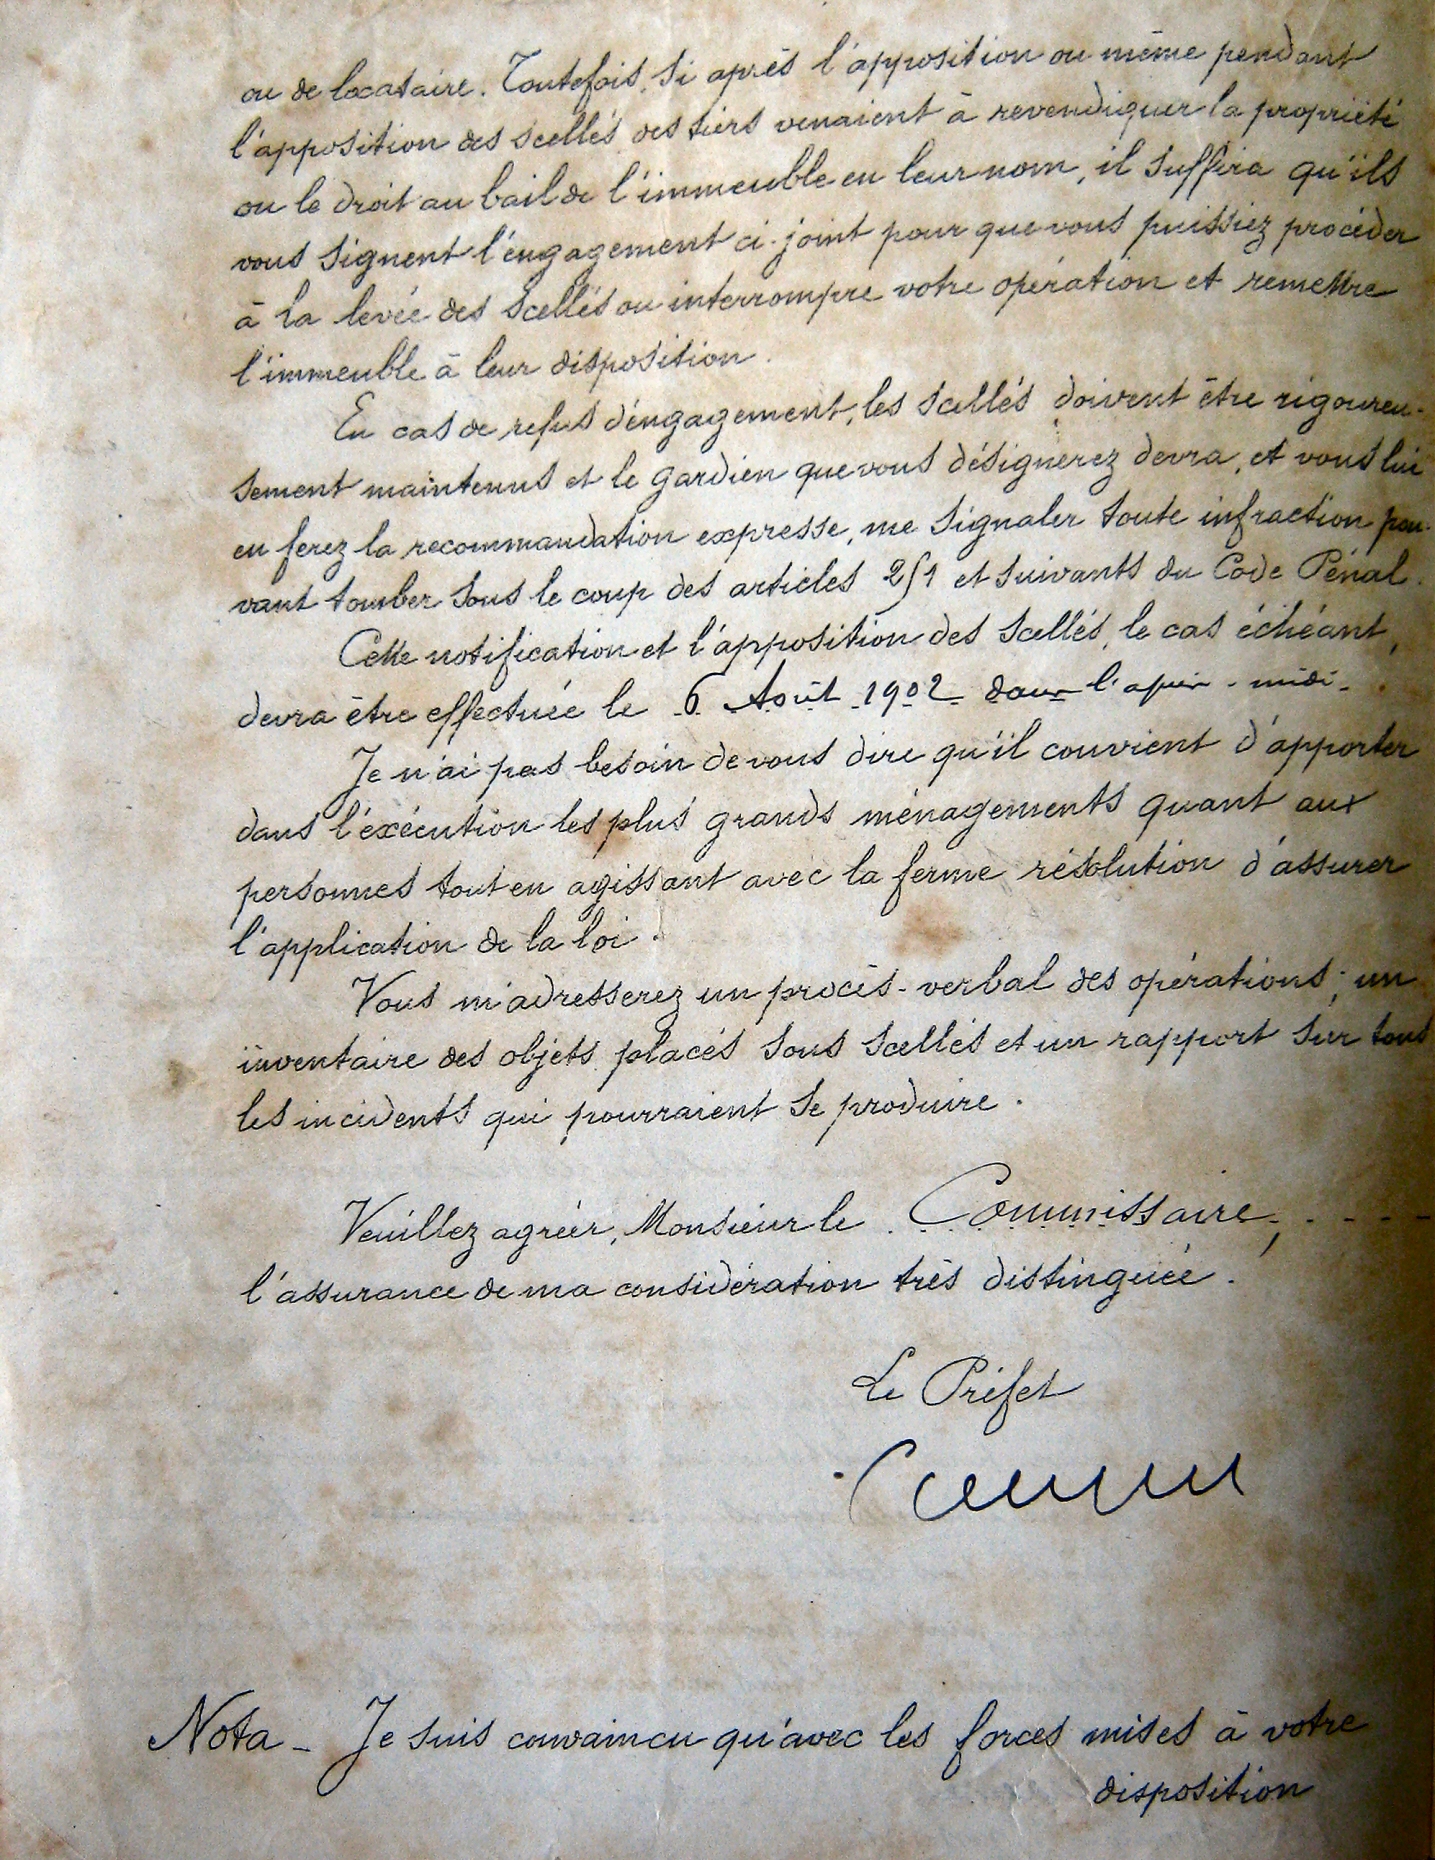 ou de locataire. Toutefois, si après l'apposition ou même pendant
l'apposition des scellés des tiers venaient à revendiquer la propriété
ou le droit au bail de l'immeuble en leur nom, il suffira qu'ils
vous signent l'engagement ci-joint pour que vous puissiez procéder
à la levée des scellés ou interrompre votre opération et remettre
l'immeuble à leur disposition.
En cas de refus d'engagement, les scellés doivent être rigoureu-
sement maintenus et le gardien que vous désignerez devra, et vous lui
en ferez la recommandation expresse, me signaler toute infraction pou-
vant tomber sous le coup des articles 251 et suivants du Code Pénal.
Cette notification et l'apposition des scellés, le cas échéant,
devra être effectuée le 6 Août 1902 dans l'après-midi.
Je n'ai pas besoin de vous dire qu'il convient d'apporter
dans l'exécution les plus grands ménagements quant aux
personnes tout en agissant avec la ferme résolution d'assurer
l'application de la loi.
Vous m'adresserez un procès-verbal des opérations; un
inventaire des objets placés sous scellés et un rapport sur tous
les incidents qui pourraient se produire.
Veuillez agréer, Monsieur le Commissaire,
l'assurance de ma considération très distinguée.
Le Préfet
Nota - Je suis convaincu qu'avec les forces mises à votre
disposition